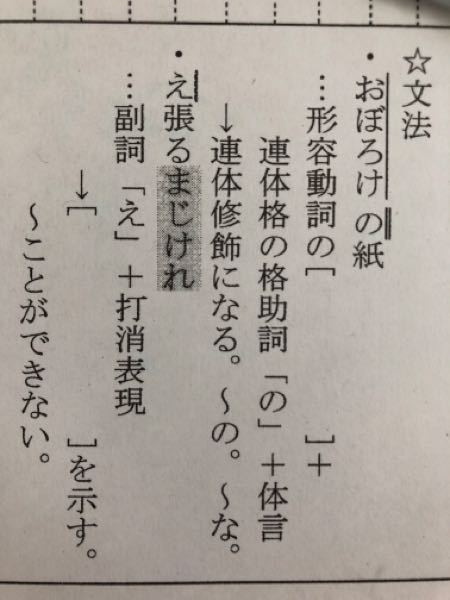 ☆文法
・おぼろけの紙
…形容動詞の［　　　］＋
連体格の格助詞「の」＋体言
→連体修飾になる。～の。～な。
・え張るまじけれ
…副詞「え」＋打消表現
→［　　　　　］を示す。
～ことができない。